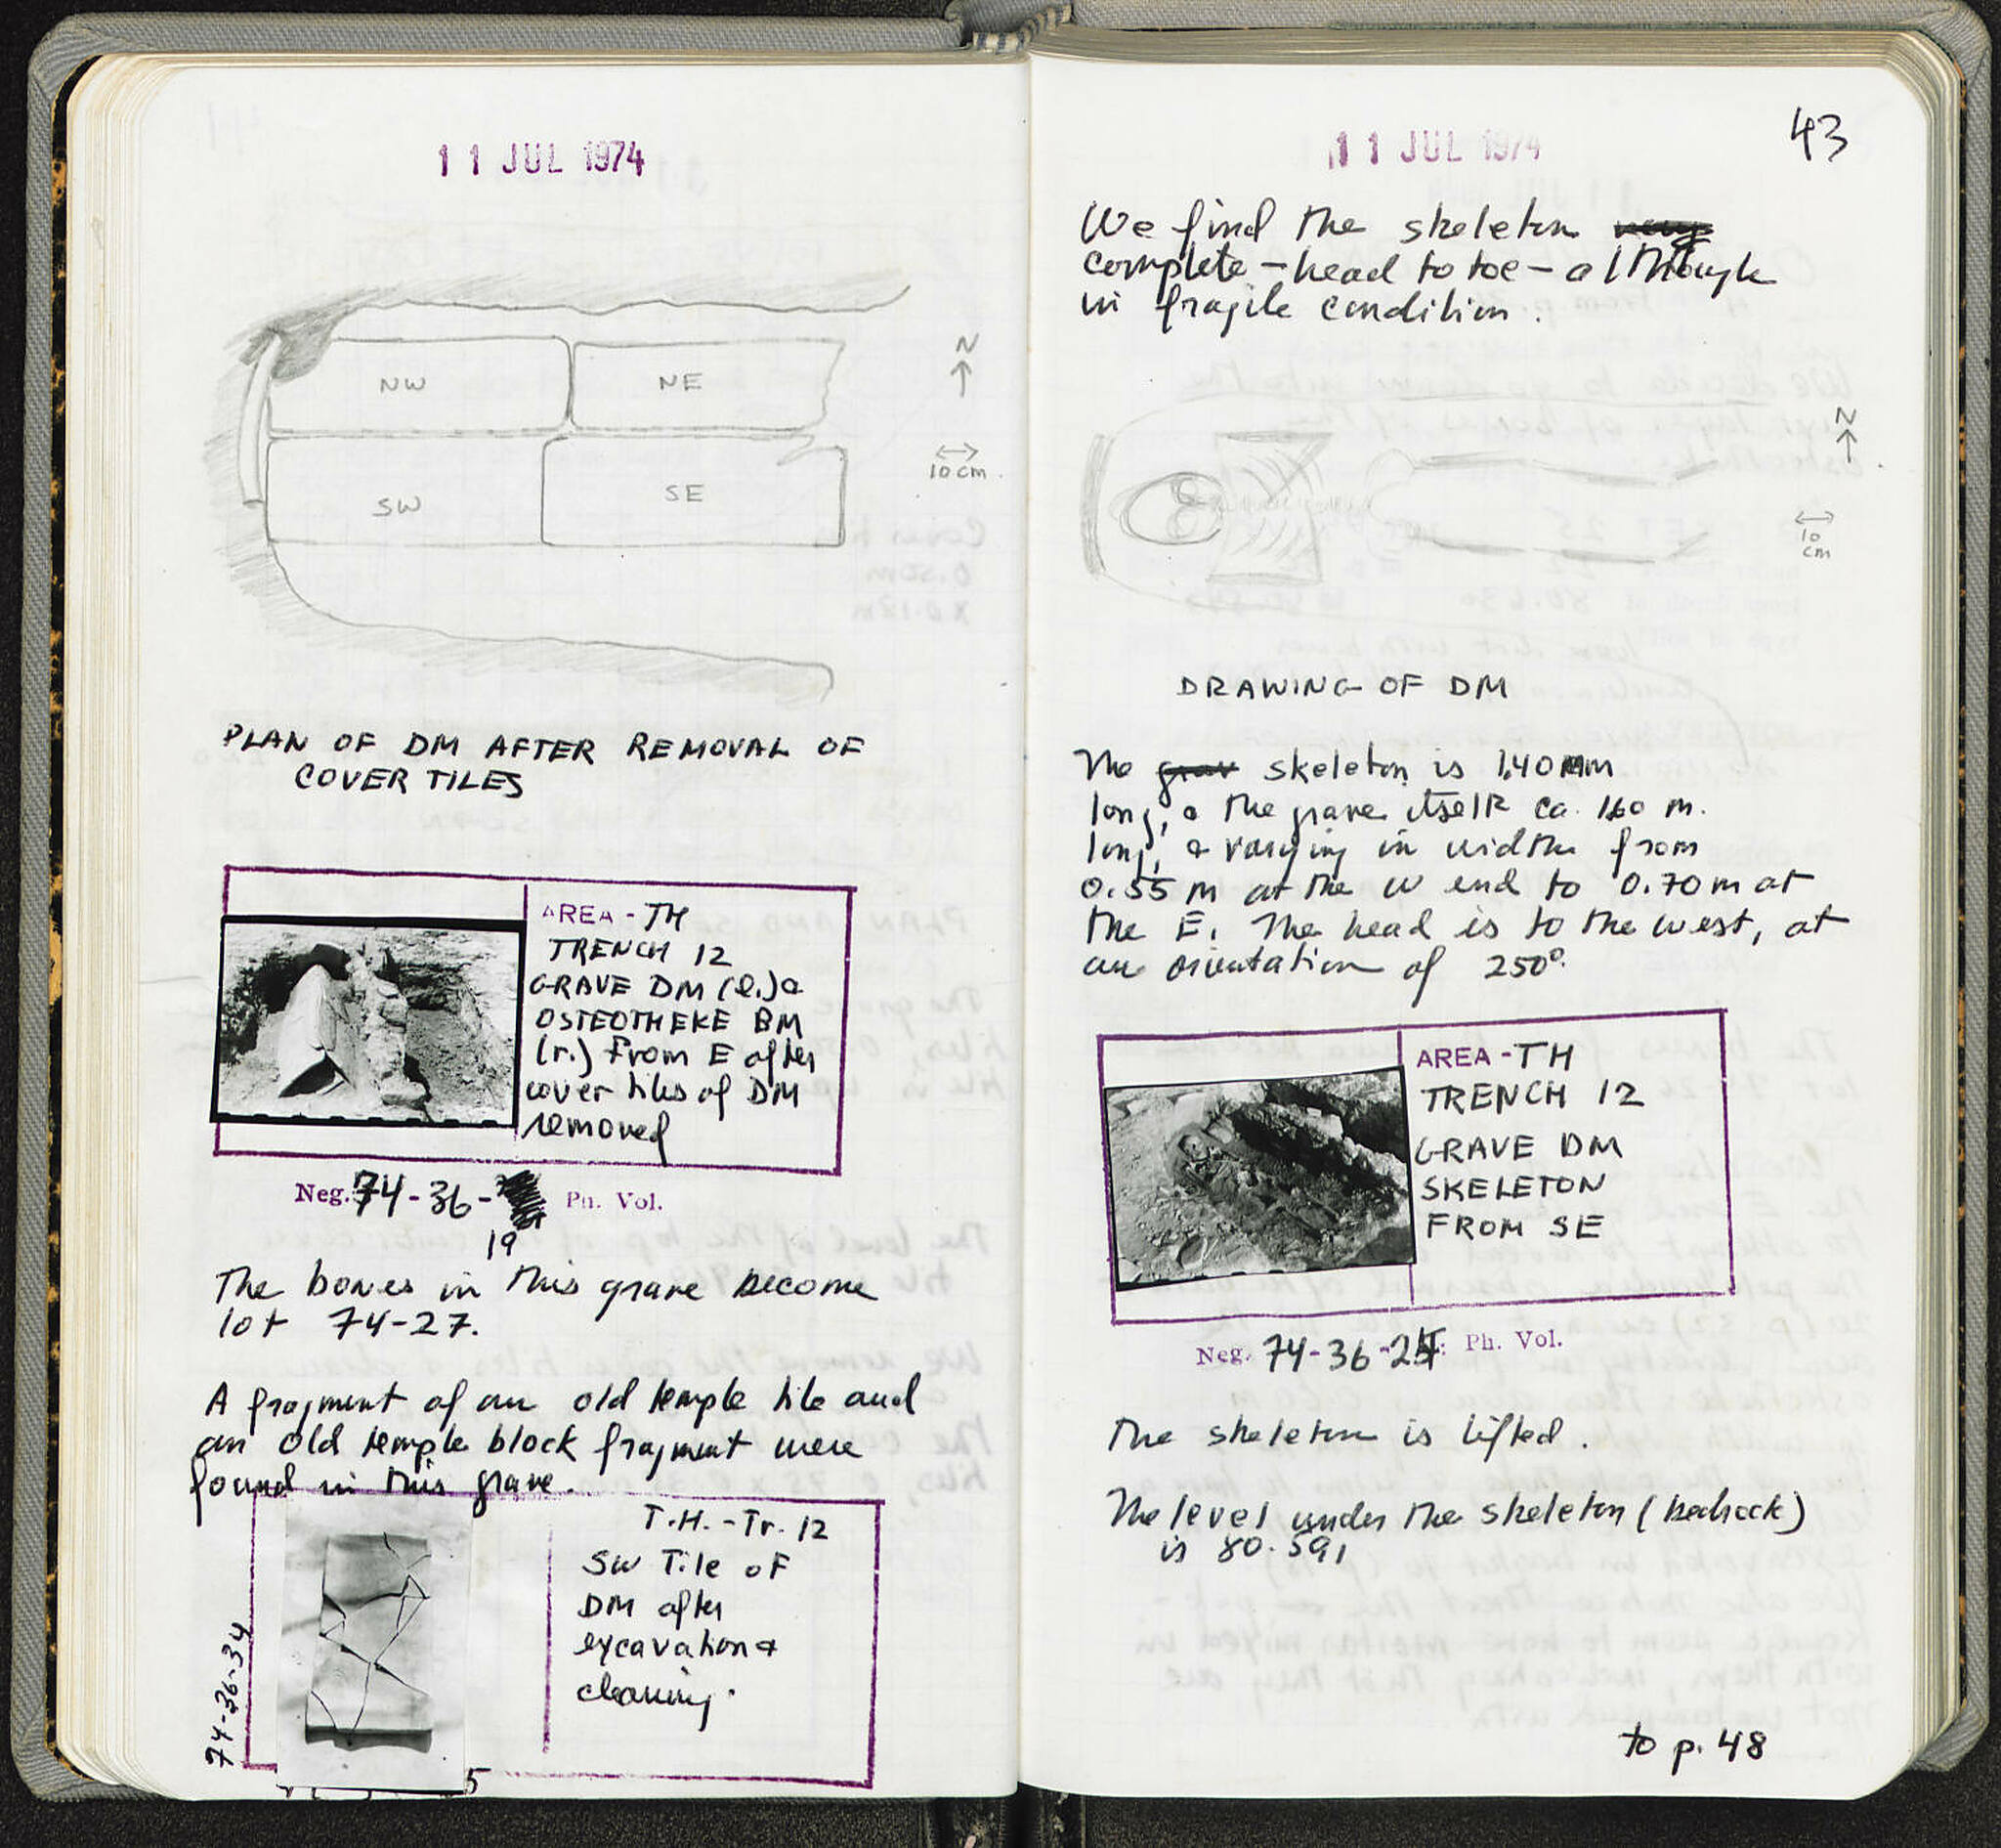 11 JUL 1974
N
NW
NE
10 cm
SW
SE
PLAN OF DM AFTER REMOVAL OF
COVER TILES
AREA - TH
TRENCH 12
GRAVE DM (l.) &
OSTEOTHEKE BM
(r.) From E after
cover tiles of DM
removed
Neg. 74-36- Ph. Vol.
19
The bones in this grave become
lot 74-27.
A fragment of an old temple tile and
an old temple block fragment were
found in this grave.
T.H. - Tr. 12
SW Tile of
DM after
excavation &
cleaning.
74-36-34
5
43
11 JUL 1974
We find the skeleton very
complete - head to toe - although
in fragile condition.
N
10
cm
DRAWING OF DM
The grav skeleton is 1.40 m
long, & the grave itself ca. 1.60 m.
long, & varying in width from
0.55 m at the W end to 0.70 m at
the E. The head is to the west, at
an orientation of 250°.
AREA - TH
TRENCH 12
GRAVE DM
SKELETON
FROM SE
Neg. 74-36- Ph. Vol.
The skeleton is lifted.
The level under the skeleton (bedrock)
is 80.591
to p. 48